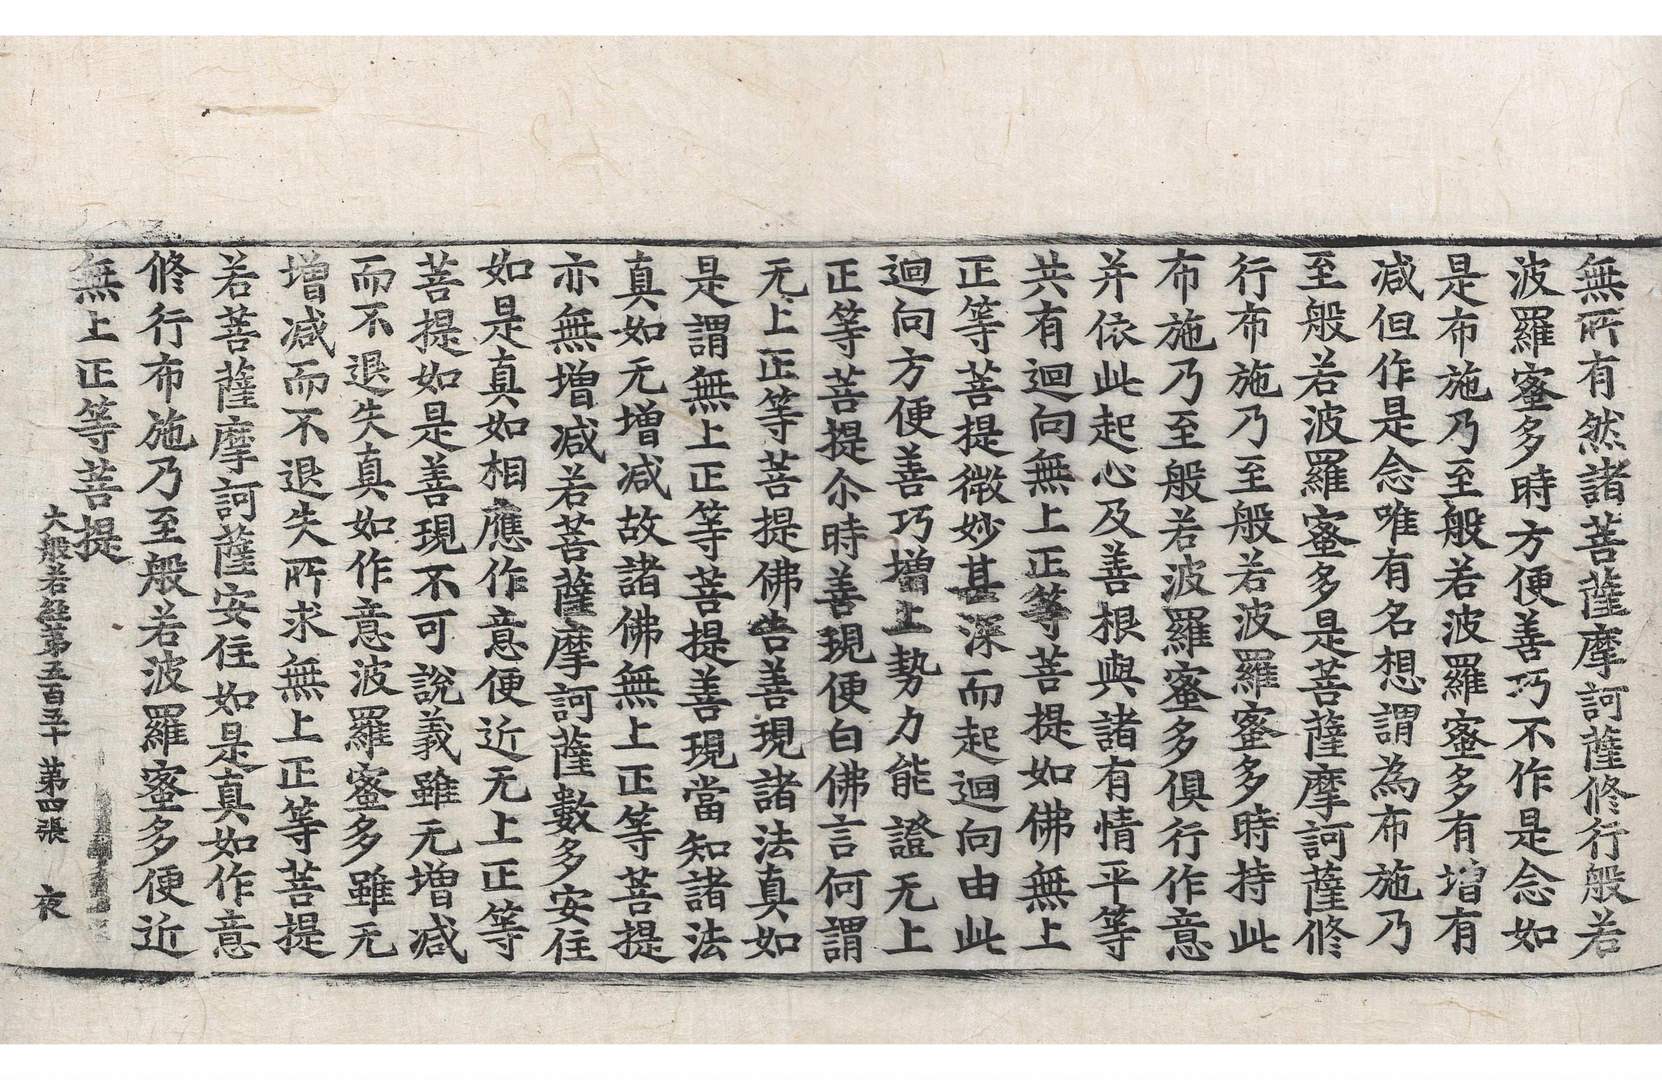 無所有然諸菩薩摩訶薩修行般若
波羅蜜多時方便善巧不作是念如
是布施乃至般若波羅蜜多有增有
减但作是念唯有名想謂為布施乃
至般若波羅蜜多是菩薩摩訶薩修
行布施乃至般若波羅蜜多時持此
布施乃至般若波羅蜜多俱行作意
并依此起心及善根與諸有情平等
共有迴向無上正等菩提如佛無上
正等菩提微妙甚深而起迴向由此
迴向方便善巧增上勢力能證无上
正等菩提尒時善現便白佛言何謂
无上正等菩提佛告善現諸法真如
是謂無上正等菩提善現當知諸法
真如无增减故諸佛無上正等菩提
亦無增减若菩薩摩訶薩數多安住
如是真如相應作意便近无上正等
菩提如是善現不可說義雖无增减
而不退失真如作意波羅蜜多雖无
增减而不退失所求無上正等菩提
若菩薩摩訶薩安住如是真如作意
修行布施乃至般若波羅蜜多便近
無上正等菩提
大般若經第五百五十 第四張 夜